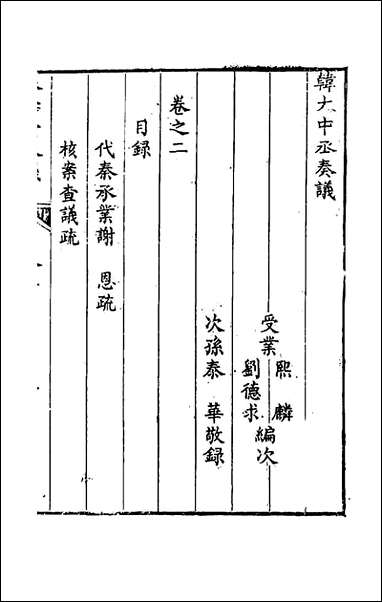 韓大中丞奏議
受業 熙麟 劉德求 編次
次孫泰 華敬録
卷之二
目録
代秦承業謝 恩疏
核案查議疏